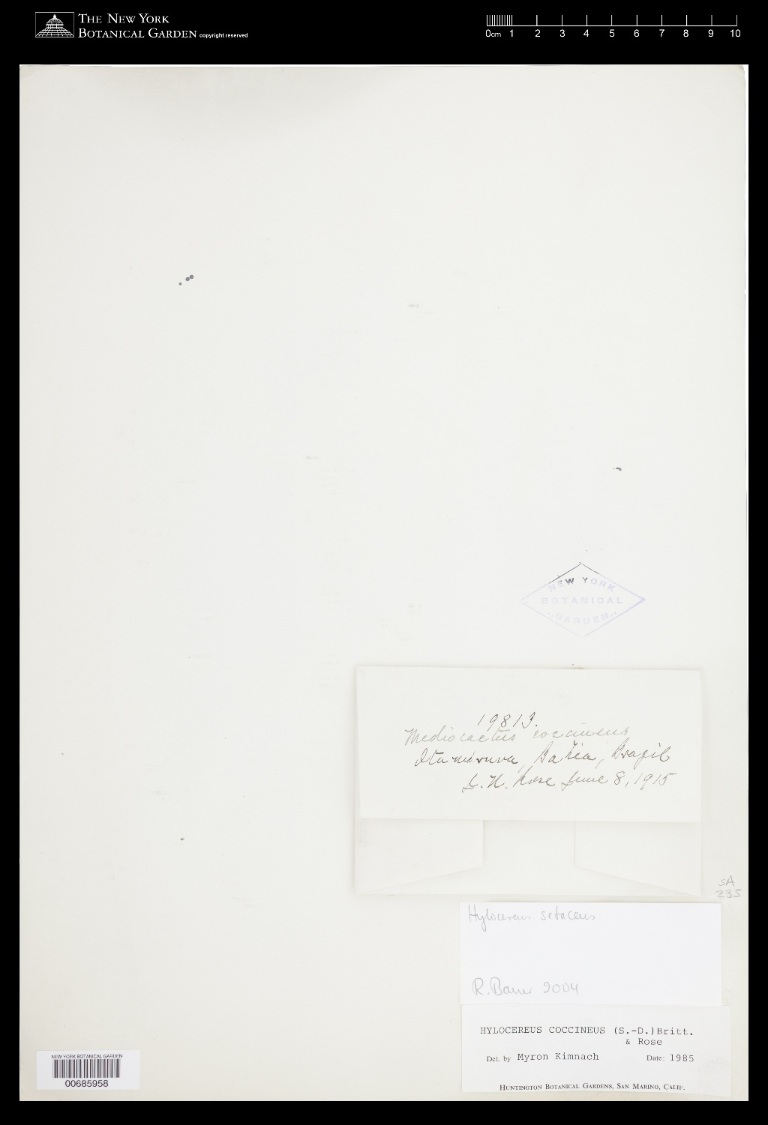 THE NEW YORK
BOTANICAL GARDEN copyright reserved
0cm 1 2 3 4 5 6 7 8 9 10
NEW YORK
BOTANICAL
GARDEN
19813.
Mediocactus coccineus
Itamaruva, Bahia, Brazil
J. N. Rose June 8, 1915
SA
235
Hylocereus setaceus
R. Bauer 2004
HYLOCEREUS COCCINEUS (S.-D.)Britt.
& Rose
Det. by Myron Kimnach Date: 1985
HUNTINGTON BOTANICAL GARDENS, SAN MARINO, CALIF.
NEW YORK BOTANICAL GARDEN
00685958